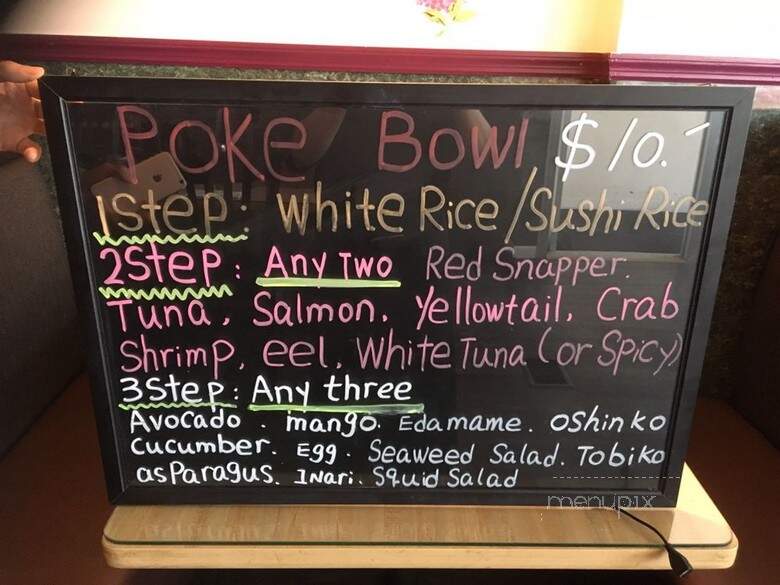 Poke Bowl $10.-
1Step: White Rice/Sushi Rice
2Step: Any Two Red Snapper.
Tuna, Salmon, Yellowtail, Crab
Shrimp, eel, White Tuna (or Spicy)
3Step: Any three
Avocado. mango. Edamame. Oshinko
Cucumber. Egg. Seaweed Salad. Tobiko
asparagus. Inari. Squid Salad
menupix